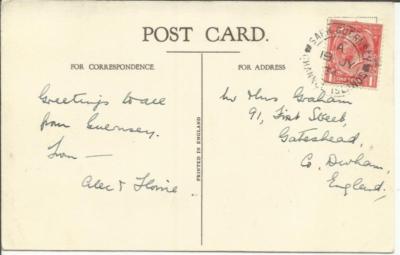 POST CARD.
FOR CORRESPONDENCE.
FOR ADDRESS
Greetings to all
from Guernsey.
from —
Alec & Florrie
Mr Mrs Graham
91, First Street,
Gateshead,
Co. Durham,
England.
PRINTED IN ENGLAND
CHANNEL ISLANDS
A
19 JY